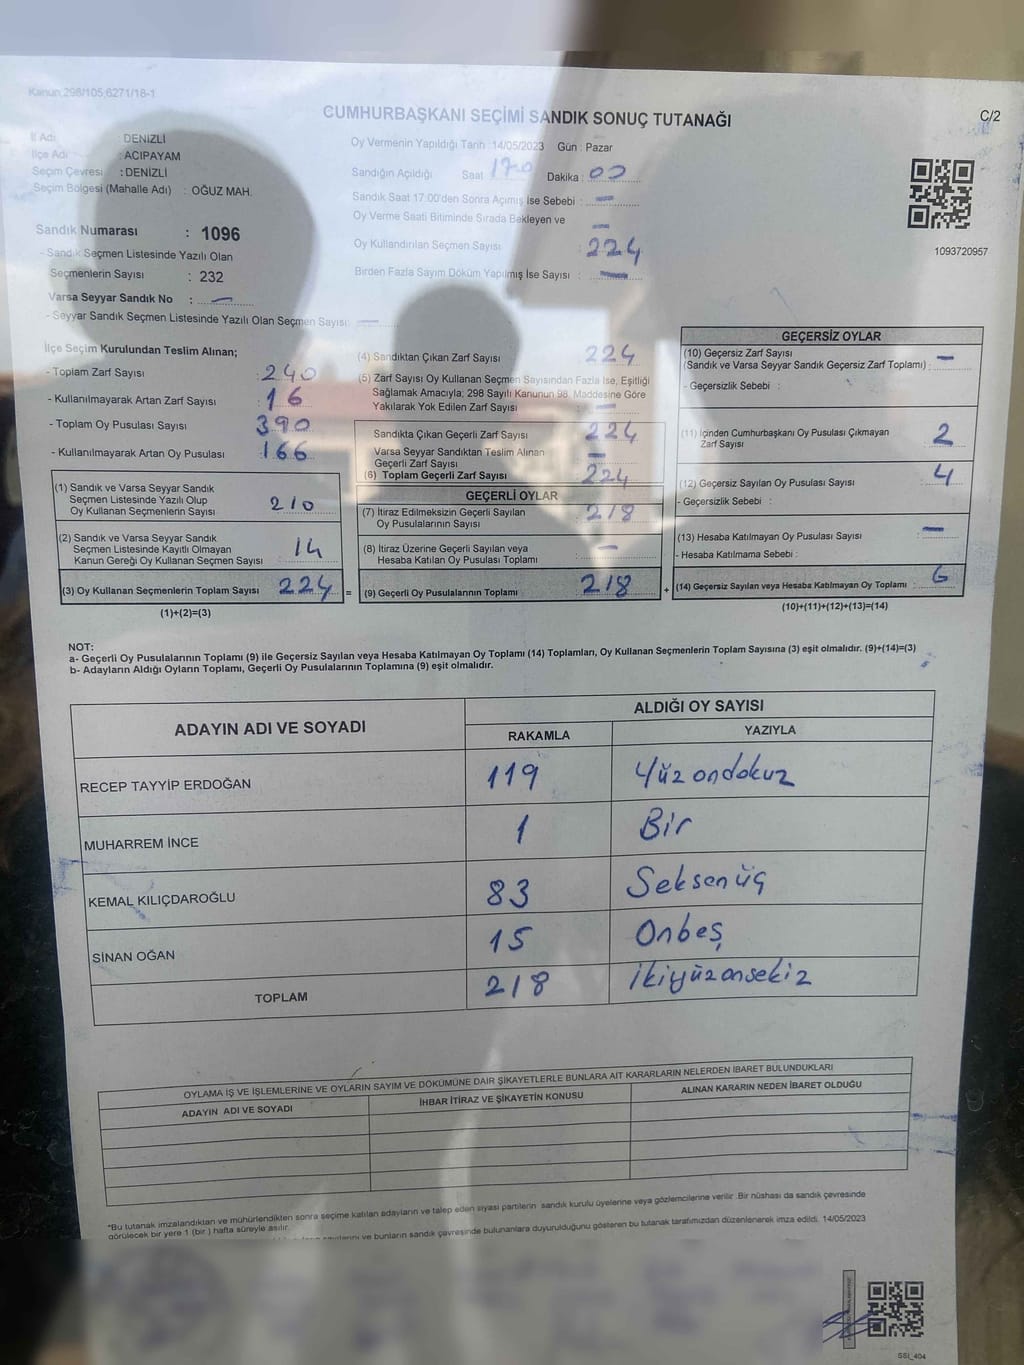 Kanun 298/105,6271/18-1
CUMHURBAŞKANI SEÇİMİ SANDIK SONUÇ TUTANAĞI
C/2
İl Adı : DENİZLİ
İlçe Adı : ACIPAYAM
Seçim Çevresi : DENİZLİ
Seçim Bölgesi (Mahalle Adı) : OĞUZ MAH.
Sandık Numarası : 1096
- Sandık Seçmen Listesinde Yazılı Olan
Seçmenlerin Sayısı : 232
Varsa Seyyar Sandık No : —
- Seyyar Sandık Seçmen Listesinde Yazılı Olan Seçmen Sayısı: —
Oy Vermenin Yapıldığı Tarih :14/05/2023 Gün : Pazar
Sandığın Açıldığı Saat Dakika : 00
Sandık Saat 17:00'den Sonra Açımış İse Sebebi : —
Oy Verme Saati Bitiminde Sırada Bekleyen ve —
Oy Kullandırılan Seçmen Sayısı : 224
Birden Fazla Sayım Döküm Yapılmış İse Sayısı : —
1093720957
İlçe Seçim Kurulundan Teslim Alınan;
- Toplam Zarf Sayısı : 240
- Kullanılmayarak Artan Zarf Sayısı : 16
- Toplam Oy Pusulası Sayısı : 390
- Kullanılmayarak Artan Oy Pusulası : 166
(1) Sandık ve Varsa Seyyar Sandık
Seçmen Listesinde Yazılı Olup
Oy Kullanan Seçmenlerin Sayısı : 210
(2) Sandık ve Varsa Seyyar Sandık
Seçmen Listesinde Kayıtlı Olmayan
Kanun Gereği Oy Kullanan Seçmen Sayısı : 14
(3) Oy Kullanan Seçmenlerin Toplam Sayısı : 224 =
(1)+(2)=(3)
(4) Sandıktan Çıkan Zarf Sayısı : 224
(5) Zarf Sayısı Oy Kullanan Seçmen Sayısından Fazla İse, Eşitliği
Sağlamak Amacıyla; 298 Sayılı Kanunun 98. Maddesine Göre
Yakılarak Yok Edilen Zarf Sayısı : —
Sandıkta Çıkan Geçerli Zarf Sayısı : 224
Varsa Seyyar Sandıktan Teslim Alınan
Geçerli Zarf Sayısı : —
(6) Toplam Geçerli Zarf Sayısı : 224
GEÇERLİ OYLAR
(7) İtiraz Edilmeksizin Geçerli Sayılan
Oy Pusulalarının Sayısı : 218
(8) İtiraz Üzerine Geçerli Sayılan veya
Hesaba Katılan Oy Pusulası Toplamı : —
(9) Geçerli Oy Pusulalarının Toplamı : 218 +
GEÇERSİZ OYLAR
(10) Geçersiz Zarf Sayısı
(Sandık ve Varsa Seyyar Sandık Geçersiz Zarf Toplamı) : —
- Geçersizlik Sebebi :
(11) İçinden Cumhurbaşkanı Oy Pusulası Çıkmayan
Zarf Sayısı : 2
(12) Geçersiz Sayılan Oy Pusulası Sayısı : 4
- Geçersizlik Sebebi :
(13) Hesaba Katılmayan Oy Pusulası Sayısı : —
- Hesaba Katılmama Sebebi :
(14) Geçersiz Sayılan veya Hesaba Katılmayan Oy Toplamı : 6
(10)+(11)+(12)+(13)=(14)
NOT:
a- Geçerli Oy Pusulalarının Toplamı (9) ile Geçersiz Sayılan veya Hesaba Katılmayan Oy Toplamı (14) Toplamları, Oy Kullanan Seçmenlerin Toplam Sayısına (3) eşit olmalıdır. (9)+(14)=(3)
b- Adayların Aldığı Oyların Toplamı, Geçerli Oy Pusulalarının Toplamına (9) eşit olmalıdır.
ADAYIN ADI VE SOYADI ALDIĞI OY SAYISI
RAKAMLA YAZIYLA
RECEP TAYYİP ERDOĞAN 119 Yüz ondokuz
MUHARREM İNCE 1 Bir
KEMAL KILIÇDAROĞLU 83 Seksenüç
SİNAN OĞAN 15 Onbeş
TOPLAM 218 İkiyüzonsekiz
OYLAMA İŞ VE İŞLEMLERİNE VE OYLARIN SAYIM VE DÖKÜMÜNE DAİR ŞİKAYETLERLE BUNLARA AİT KARARLARIN NELERDEN İBARET BULUNDUKLARI
ADAYIN ADI VE SOYADI İHBAR İTİRAZ VE ŞİKAYETİN KONUSU ALINAN KARARIN NEDEN İBARET OLDUĞU
*Bu tutanak imzalandıktan ve mühürlendikten sonra seçime katılan adayların ve talep eden siyasi partilerin sandık kurulu üyelerine veya gözlemcilerine verilir. Bir nüshası da sandık çevresinde
görülecek bir yere 1 (bir) hafta süreyle asılır.
ve bunların sandık çevresinde bulunanlara duyurulduğunu gösteren bu tutanak tarafımızdan düzenlenerek imza edildi. 14/05/2023
SSI_404